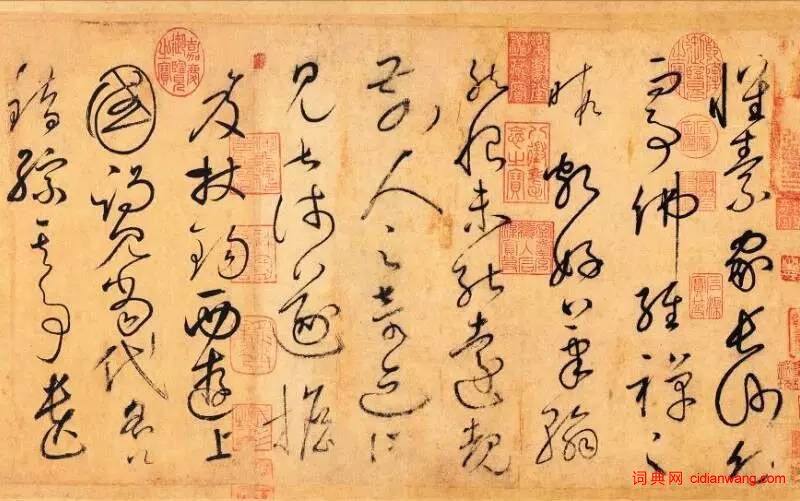 懷素家長沙幼
而事佛經禪之
暇頗好筆翰
然恨未能遠覩
前人之奇迹所
見甚淺遂擔
笈杖錫西遊上
國謁見當代名公
錯綜其事遺
嘉慶御覽之寶
八徵耄念之寶
词典网 cidianwang.com